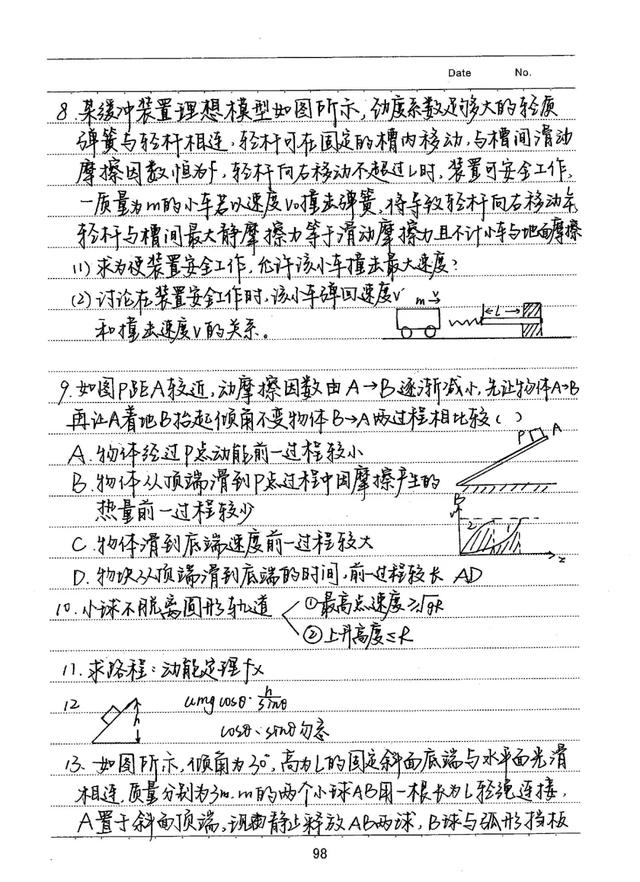 Date No.
8.某缓冲装置理想模型如图所示,劲度系数足够大的轻质
弹簧与轻杆相连,轻杆可在固定的槽内移动,与槽间滑动
摩擦因数恒为f,轻杆向右移动不超过l时,装置可安全工作,
一质量为m的小车若以速度v₀撞击弹簧,将导致轻杆向右移动
轻杆与槽间最大静摩擦力等于滑动摩擦力且不计小车与地面摩擦
(1)求为使装置安全工作,允许该小车撞击最大速度?
(2)讨论在装置安全工作时,该小车弹回速度v'
和撞击速度v的关系。
m v l
9.如图P距A较近,动摩擦因数由A→B逐渐减小,先让物体A→B
再让A着地B抬起倾角不变物体B→A两过程相比较( )
A.物体经过P点动能前一过程较小
P A
B.物体从顶端滑到P点过程中因摩擦产生的
B
热量前一过程较少
2 1
C.物体滑到底端速度前一过程较大
x
D.物块从顶端滑到底端的时间,前一过程较长 AD
10.小球不脱离圆形轨道 ①最高点速度≥√gR
②上升高度≤R
11.求路程:动能定理fx
12 h umgcosθ·h/sinθ
cosθ·sinθ勿忘
13.如图所示,倾角为30°,高为L的固定斜面底端与水平面光滑
相连,质量分别为3m.m的两个小球AB用一根长为L轻绳连接,
A置于斜面顶端,现由静止释放AB两球,B球与弧形挡板
98